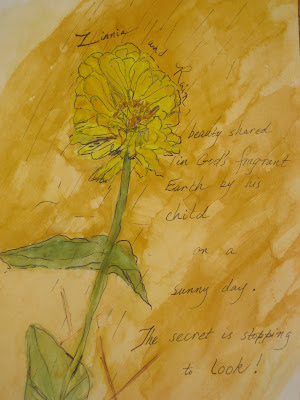 Zinnia and Rain
beauty shared
in God's fragrant
Earth by his
child
on a
sunny day.
The secret is stopping
to look!